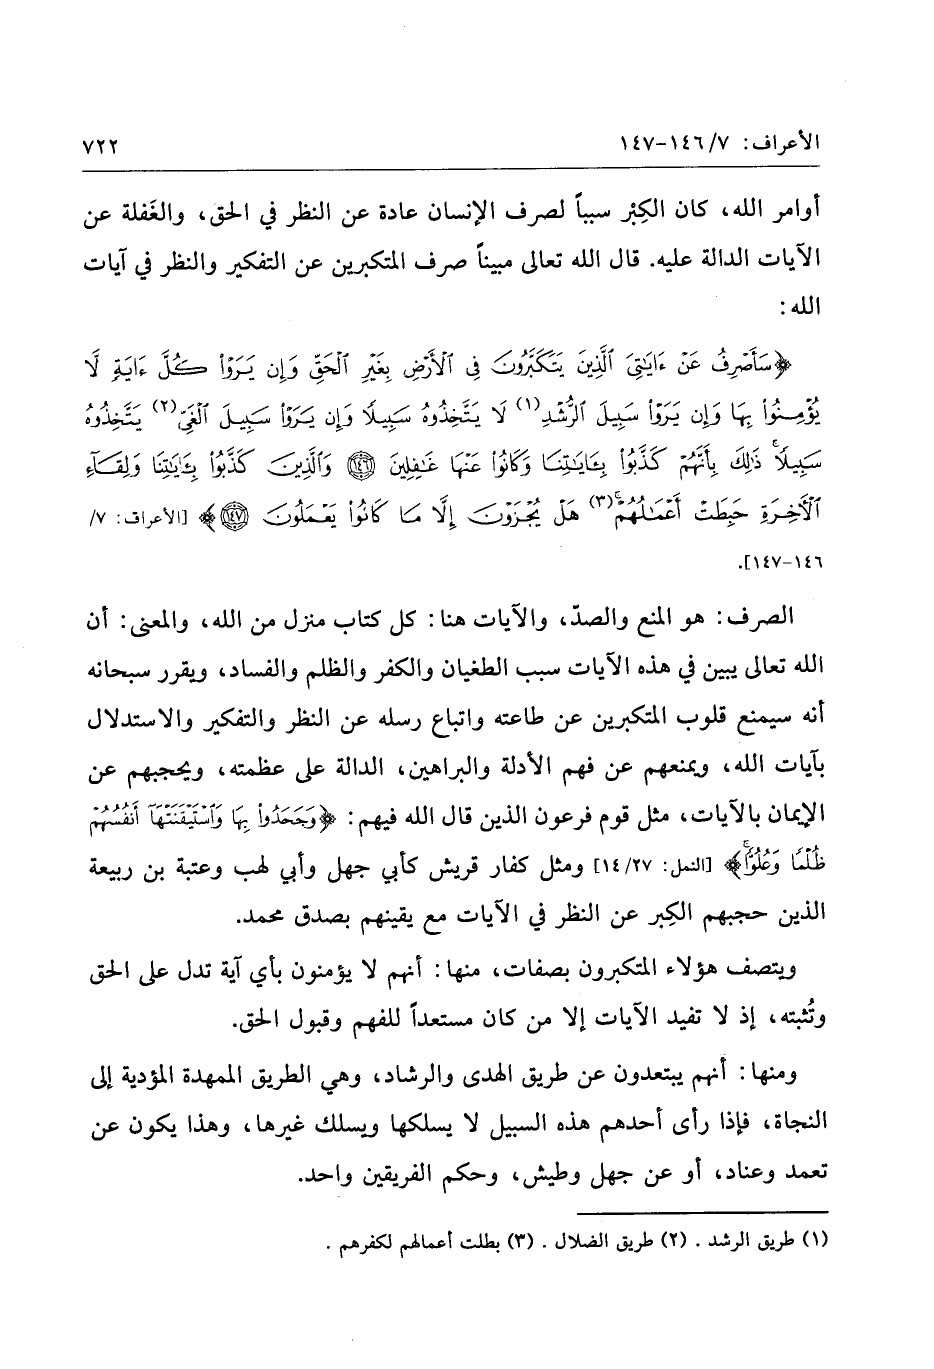 الأعراف: ٧/ ١٤٦-١٤٧
٧٢٢
أوامر الله، كان الكِبْر سبباً لصرف الإنسان عادة عن النظر في الحق، والغَفلة عن
الآيات الدالة عليه. قال الله تعالى مبيناً صرف المتكبرين عن التفكير والنظر في آيات
الله:
﴿سَأَصْرِفُ عَنْ ءَايَٰتِيَ ٱلَّذِينَ يَتَكَبَّرُونَ فِى ٱلْأَرْضِ بِغَيْرِ ٱلْحَقِّ وَإِن يَرَوْا۟ كُلَّ ءَايَةٍ لَّا
يُؤْمِنُوا۟ بِهَا وَإِن يَرَوْا۟ سَبِيلَ ٱلرُّشْدِ(١) لَا يَتَّخِذُوهُ سَبِيلًا وَإِن يَرَوْا۟ سَبِيلَ ٱلْغَىِّ(٢) يَتَّخِذُوهُ
سَبِيلًا ۚ ذَٰلِكَ بِأَنَّهُمْ كَذَّبُوا۟ بِـَٔايَٰتِنَا وَكَانُوا۟ عَنْهَا غَٰفِلِينَ ﴿١٤٦﴾ وَٱلَّذِينَ كَذَّبُوا۟ بِـَٔايَٰتِنَا وَلِقَآءِ
ٱلْأٓخِرَةِ حَبِطَتْ أَعْمَٰلُهُمْ ۚ(٣) هَلْ يُجْزَوْنَ إِلَّا مَا كَانُوا۟ يَعْمَلُونَ ﴿١٤٧﴾﴾ [الأعراف: ٧/
١٤٦-١٤٧].
الصرف: هو المنع والصدّ، والآيات هنا: كل كتاب منزل من الله، والمعنى: أن
الله تعالى يبين في هذه الآيات سبب الطغيان والكفر والظلم والفساد، ويقرر سبحانه
أنه سيمنع قلوب المتكبرين عن طاعته واتباع رسله عن النظر والتفكير والاستدلال
بآيات الله، ويمنعهم عن فهم الأدلة والبراهين، الدالة على عظمته، ويحجبهم عن
الإيمان بالآيات، مثل قوم فرعون الذين قال الله فيهم: ﴿وَجَحَدُوا۟ بِهَا وَٱسْتَيْقَنَتْهَآ أَنفُسُهُمْ
ظُلْمًا وَعُلُوًّا ۚ﴾ [النمل: ٢٧/ ١٤] ومثل كفار قريش كأبي جهل وأبي لهب وعتبة بن ربيعة
الذين حجبهم الكِبر عن النظر في الآيات مع يقينهم بصدق محمد.
ويتصف هؤلاء المتكبرون بصفات، منها: أنهم لا يؤمنون بأي آية تدل على الحق
وتُثبته، إذ لا تفيد الآيات إلا من كان مستعداً للفهم وقبول الحق.
ومنها: أنهم يبتعدون عن طريق الهدى والرشاد، وهي الطريق الممهدة المؤدية إلى
النجاة، فإذا رأى أحدهم هذه السبيل لا يسلكها ويسلك غيرها، وهذا يكون عن
تعمد وعناد، أو عن جهل وطيش، وحكم الفريقين واحد.
(١) طريق الرشد . (٢) طريق الضلال . (٣) بطلت أعمالهم لكفرهم .